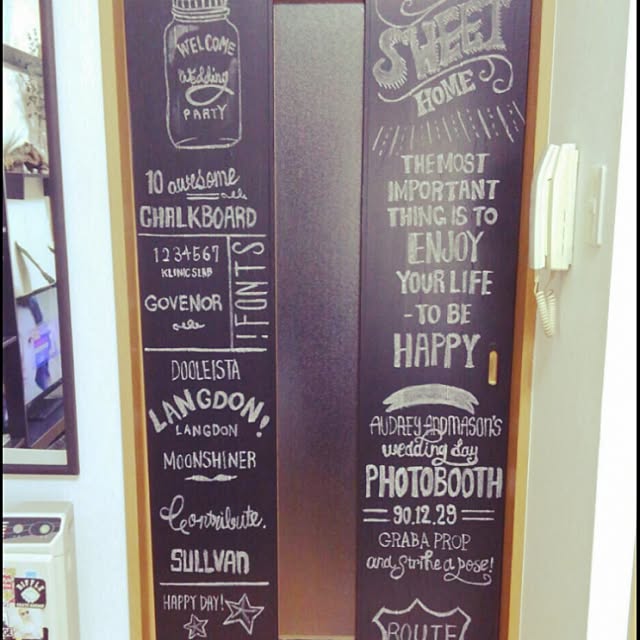 WELCOME
wedding
PARTY
10 awesome
CHALKBOARD
1234567
KLINIC SLAB
GOVENOR
FONTS!!
DOOLEISTA
LANGDON!
LANGDON
MOONSHINER
Contribute.
SULLVAN
HAPPY DAY!
SWEET
HOME
THE MOST
IMPORTANT
THING IS TO
ENJOY
YOUR LIFE
- TO BE
HAPPY
AUDREY ADMASON'S
wedding day
PHOTOBOOTH
90.12.29
GRAB A PROP
and strike a pose!
ROUTE